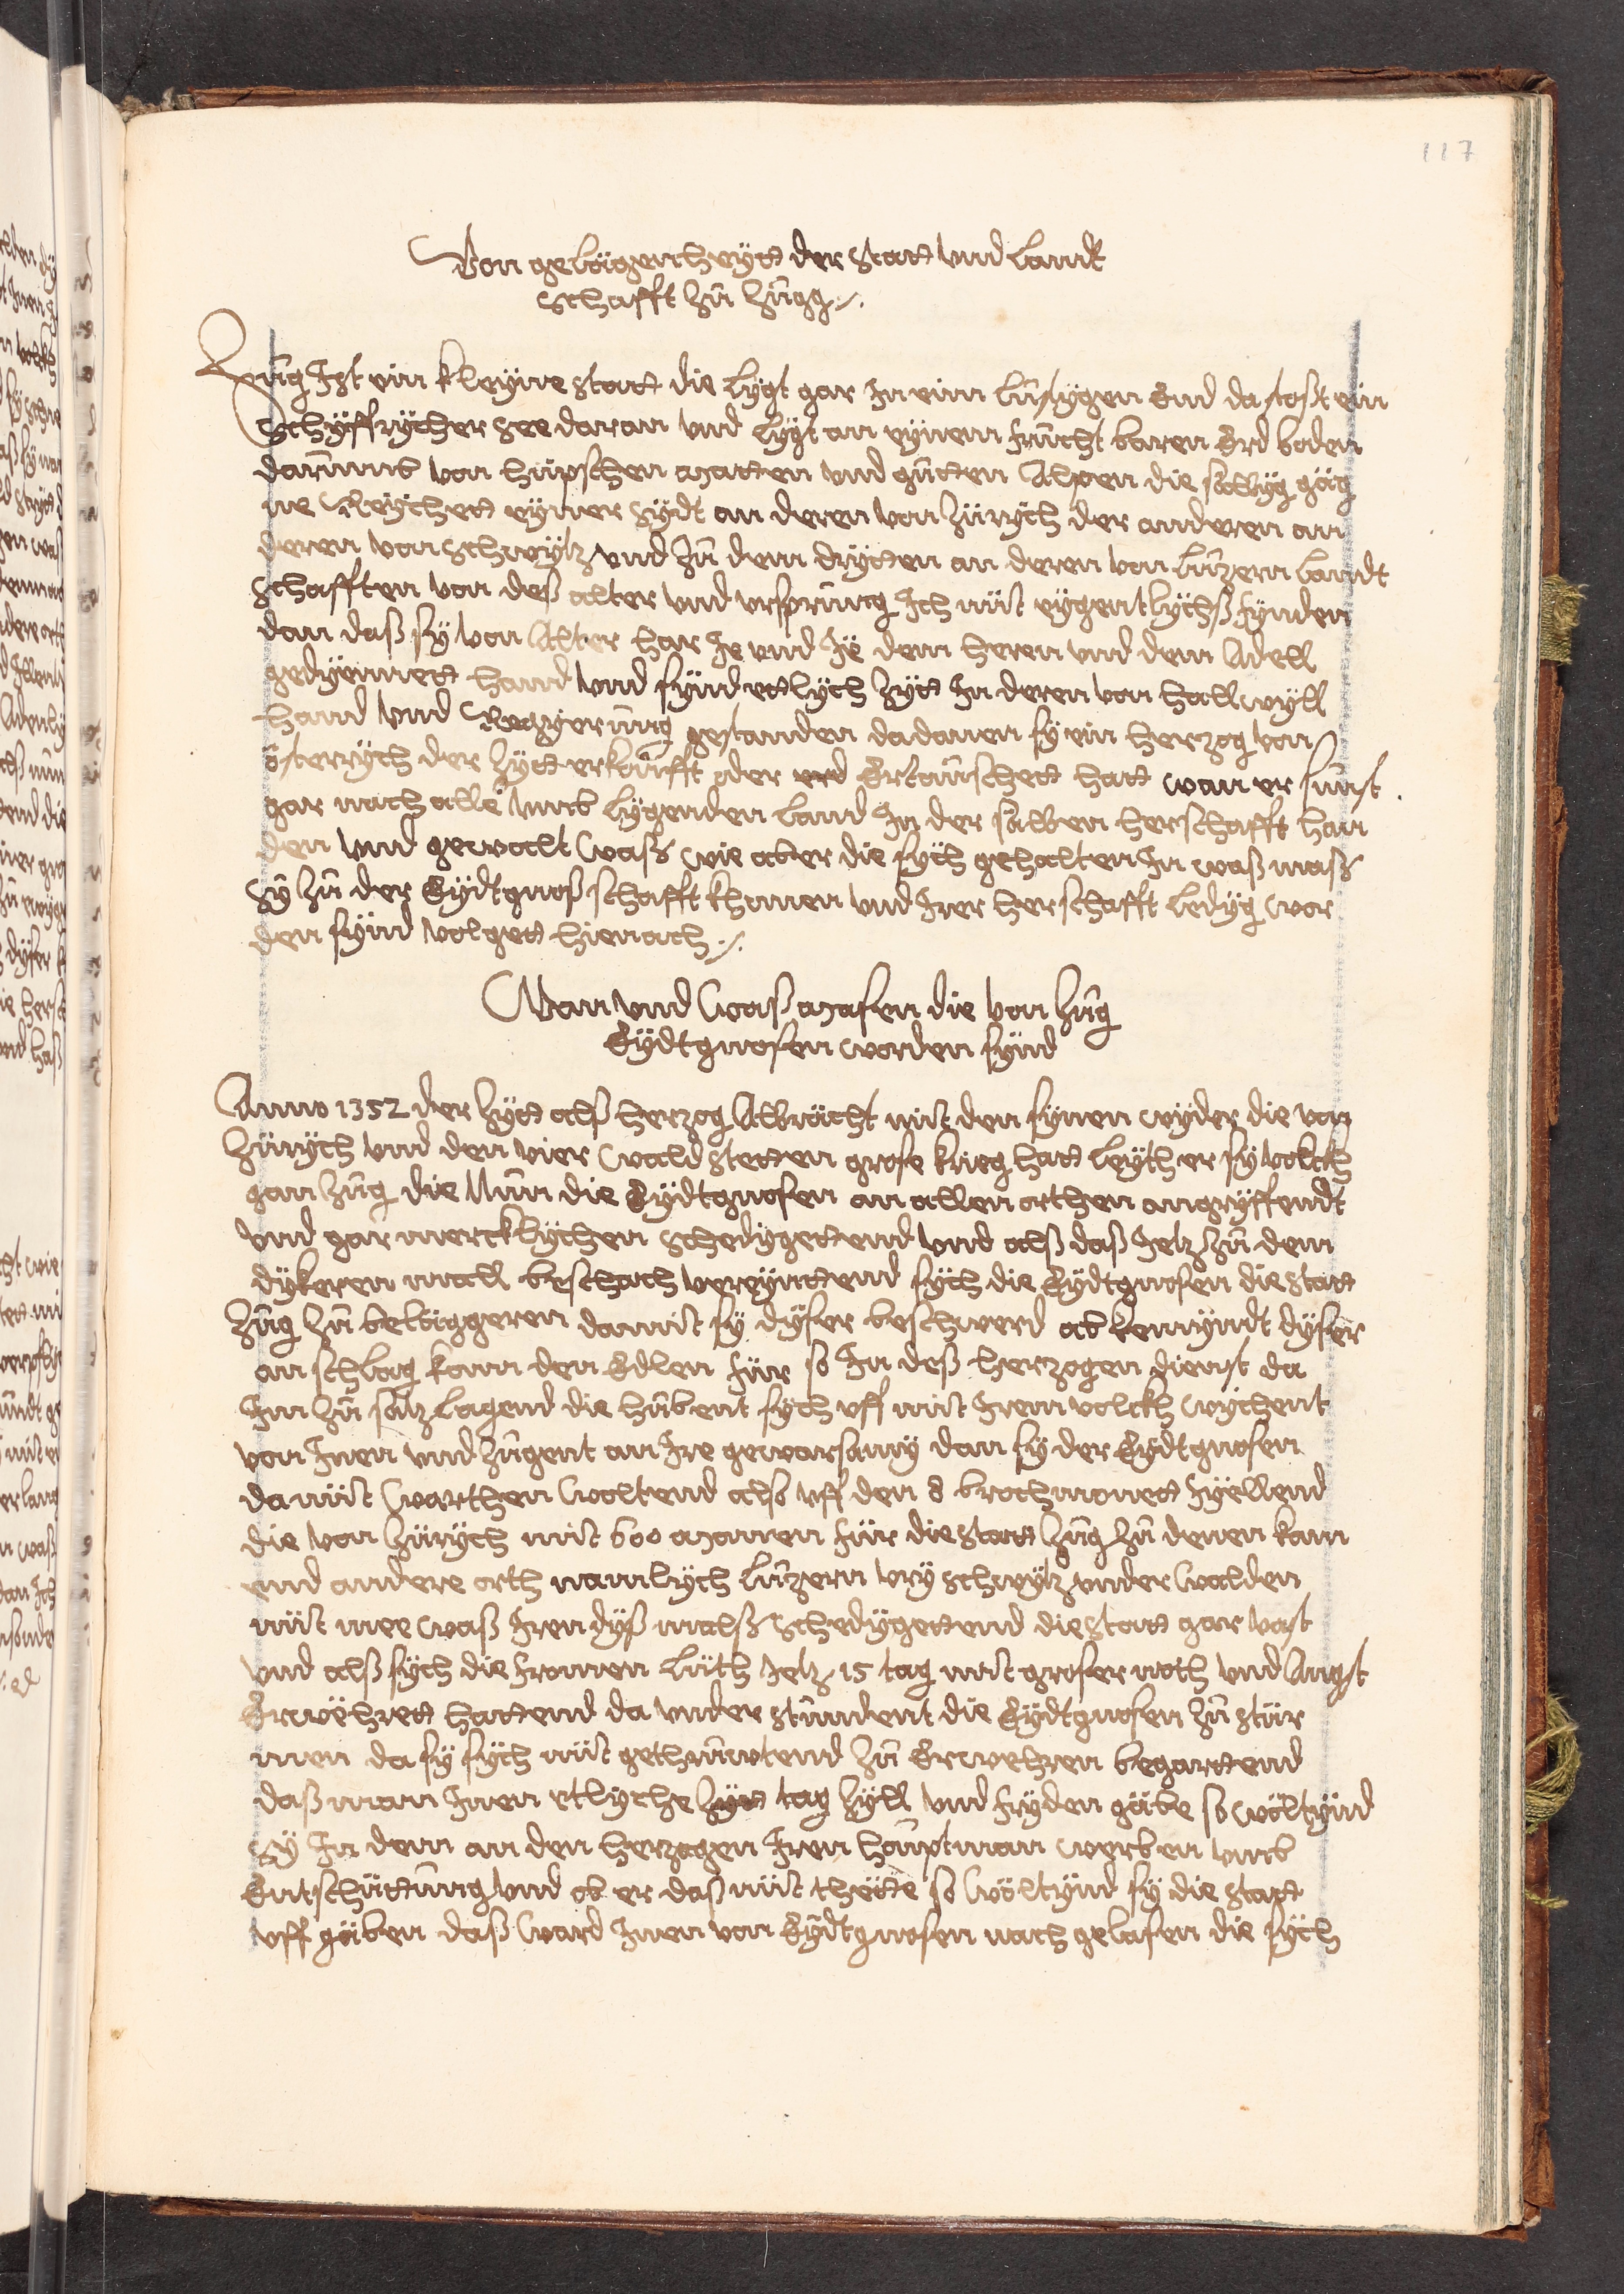 117
Von gelägentheytt der statt vnd Landt
schafft zů Zůgg ./.
Zůg Ist ein kleyne statt die Lygt gar In eim Lůstygen End da stost ein
Schyffrycher see daran vnd Lygt an eynem frůcht baren Erd boden
darůmb von hüpschen Matten vnd gůtten Alpen die sälbyg gäg
ne Reychett eyner sydt an deren von Zürych der anderen an
deren von schwytz vnd zů dem drytten an deren von Lůzern Landt
schafften von deß alter vnd vrsprůng Ich nüt eygentlychß fynden
dan daß sy von Alter har Je vnd Je dem heren vnd dem Adell
gedyennett hand vnd synd ettlych zytt In deren von hallwyll
hand vnd Regyerůng gestanden dadanen sy ein herzog von
österrych der zytt erkoůfft oder Ertaůschett hatt wan er sůnst
gar nach alle vmb lygenden Land In der sälben herschafft han
den vnd gewalt waß wie aber die sych gehalten In waß maß
sy zů der Eydtgnoß schafft khomen vnd Irer herschafft Ledyg wor
den synd volgett hienach ./.
Wan vnd waß Masen die von Zůg
Eydtgnosen worden synd
Anno 1352 der zytt alß herzog Albrächt mit den synen wyder die von
Zürych vnd den vier wald stetten grose krieg hatt Leyth er sy volckh
gan Zůg die Nůn die Eydtgnosen an allen orthen angryffendt
vnd gar mercklychen schedygettend vnd alß daß Jetz zů dem
dykeren mall beschach vereynttend sych die Eydtgnosen die statt
Zůg zů beläggeren damit sy dyser beschwerd ab kemyndt dyser
an schlag kam den Edlen für so In deß herzogen dienst da
Im zů sätz Lagend die hůbent sych vff mit Irem volckh wychent
von Inen vnd zůgent an Ire gewarsamy dan sy der Eydtgnosen
da nüt warthen woltend also vff den 8 brochmonett zyëllend
die von Zürych mit 600 Manen für die statt Zůg zů denen kam
end andere orth namlych Lůzern vry schwytz vnder walden
nüt mee waß Iren dyß malß schedygettend die statt gar vast
vnd alß sych die fromen Lüth Jetz 15 tag mit groser noth vnd Angst
Erwëhrett hattend da vnder stůndent die Eydtgnosen zů stür
men da sy sych nüt gethrůwtend zů Erwehren begarttend
daß man Inen ettlyche tag zyll vnd fryden gäbe so wöltynd
sy In dem an den herzogen Iren hoůptman werben vmb
Entschüttůng vnd ob er daß nüt thette so wöltynd sy die statt
vff gäben daß ward Inen von Eydtgnosen nach gelasen die sych